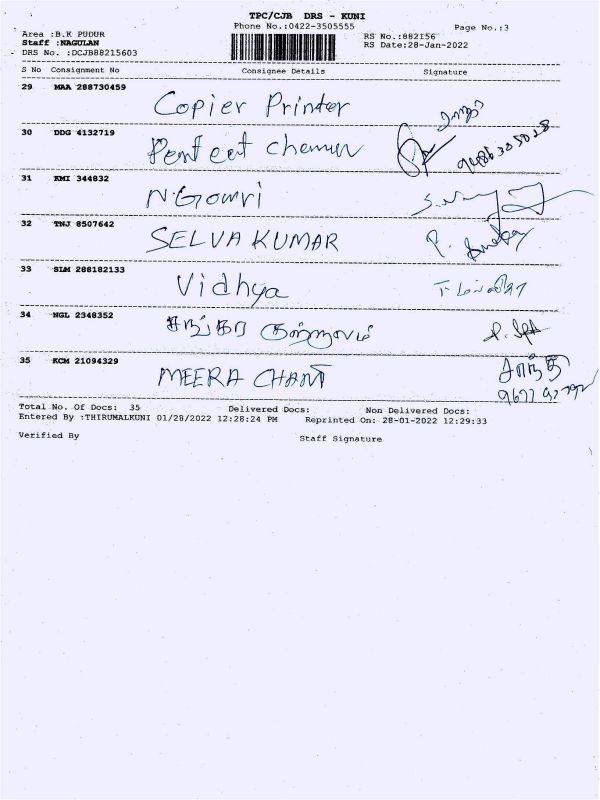 TPC/CJB DRS - KUNI
Phone No.:0422-3505555
Page No.:3
Area :B.K PUDUR
RS No.:882156
Staff :NAGULAN
RS Date:28-Jan-2022
DRS No. :DCJB88215603
S No Consignment No Consignee Details Signature
29 MAA 288730459 Copier Printer
30 DDG 4132719 9486305028
31 KMI 344832 N Gowri
32 TNJ 8507642 SELVA KUMAR
33 SLM 288182133 Vidhya
34 NGL 2348352
35 KCM 21094329 MEERA CHANT சாந்தி
Total No. Of Docs: 35 Delivered Docs: Non Delivered Docs:
Entered By :THIRUMALKUNI 01/28/2022 12:28:24 PM Reprinted On: 28-01-2022 12:29:33
Verified By Staff Signature